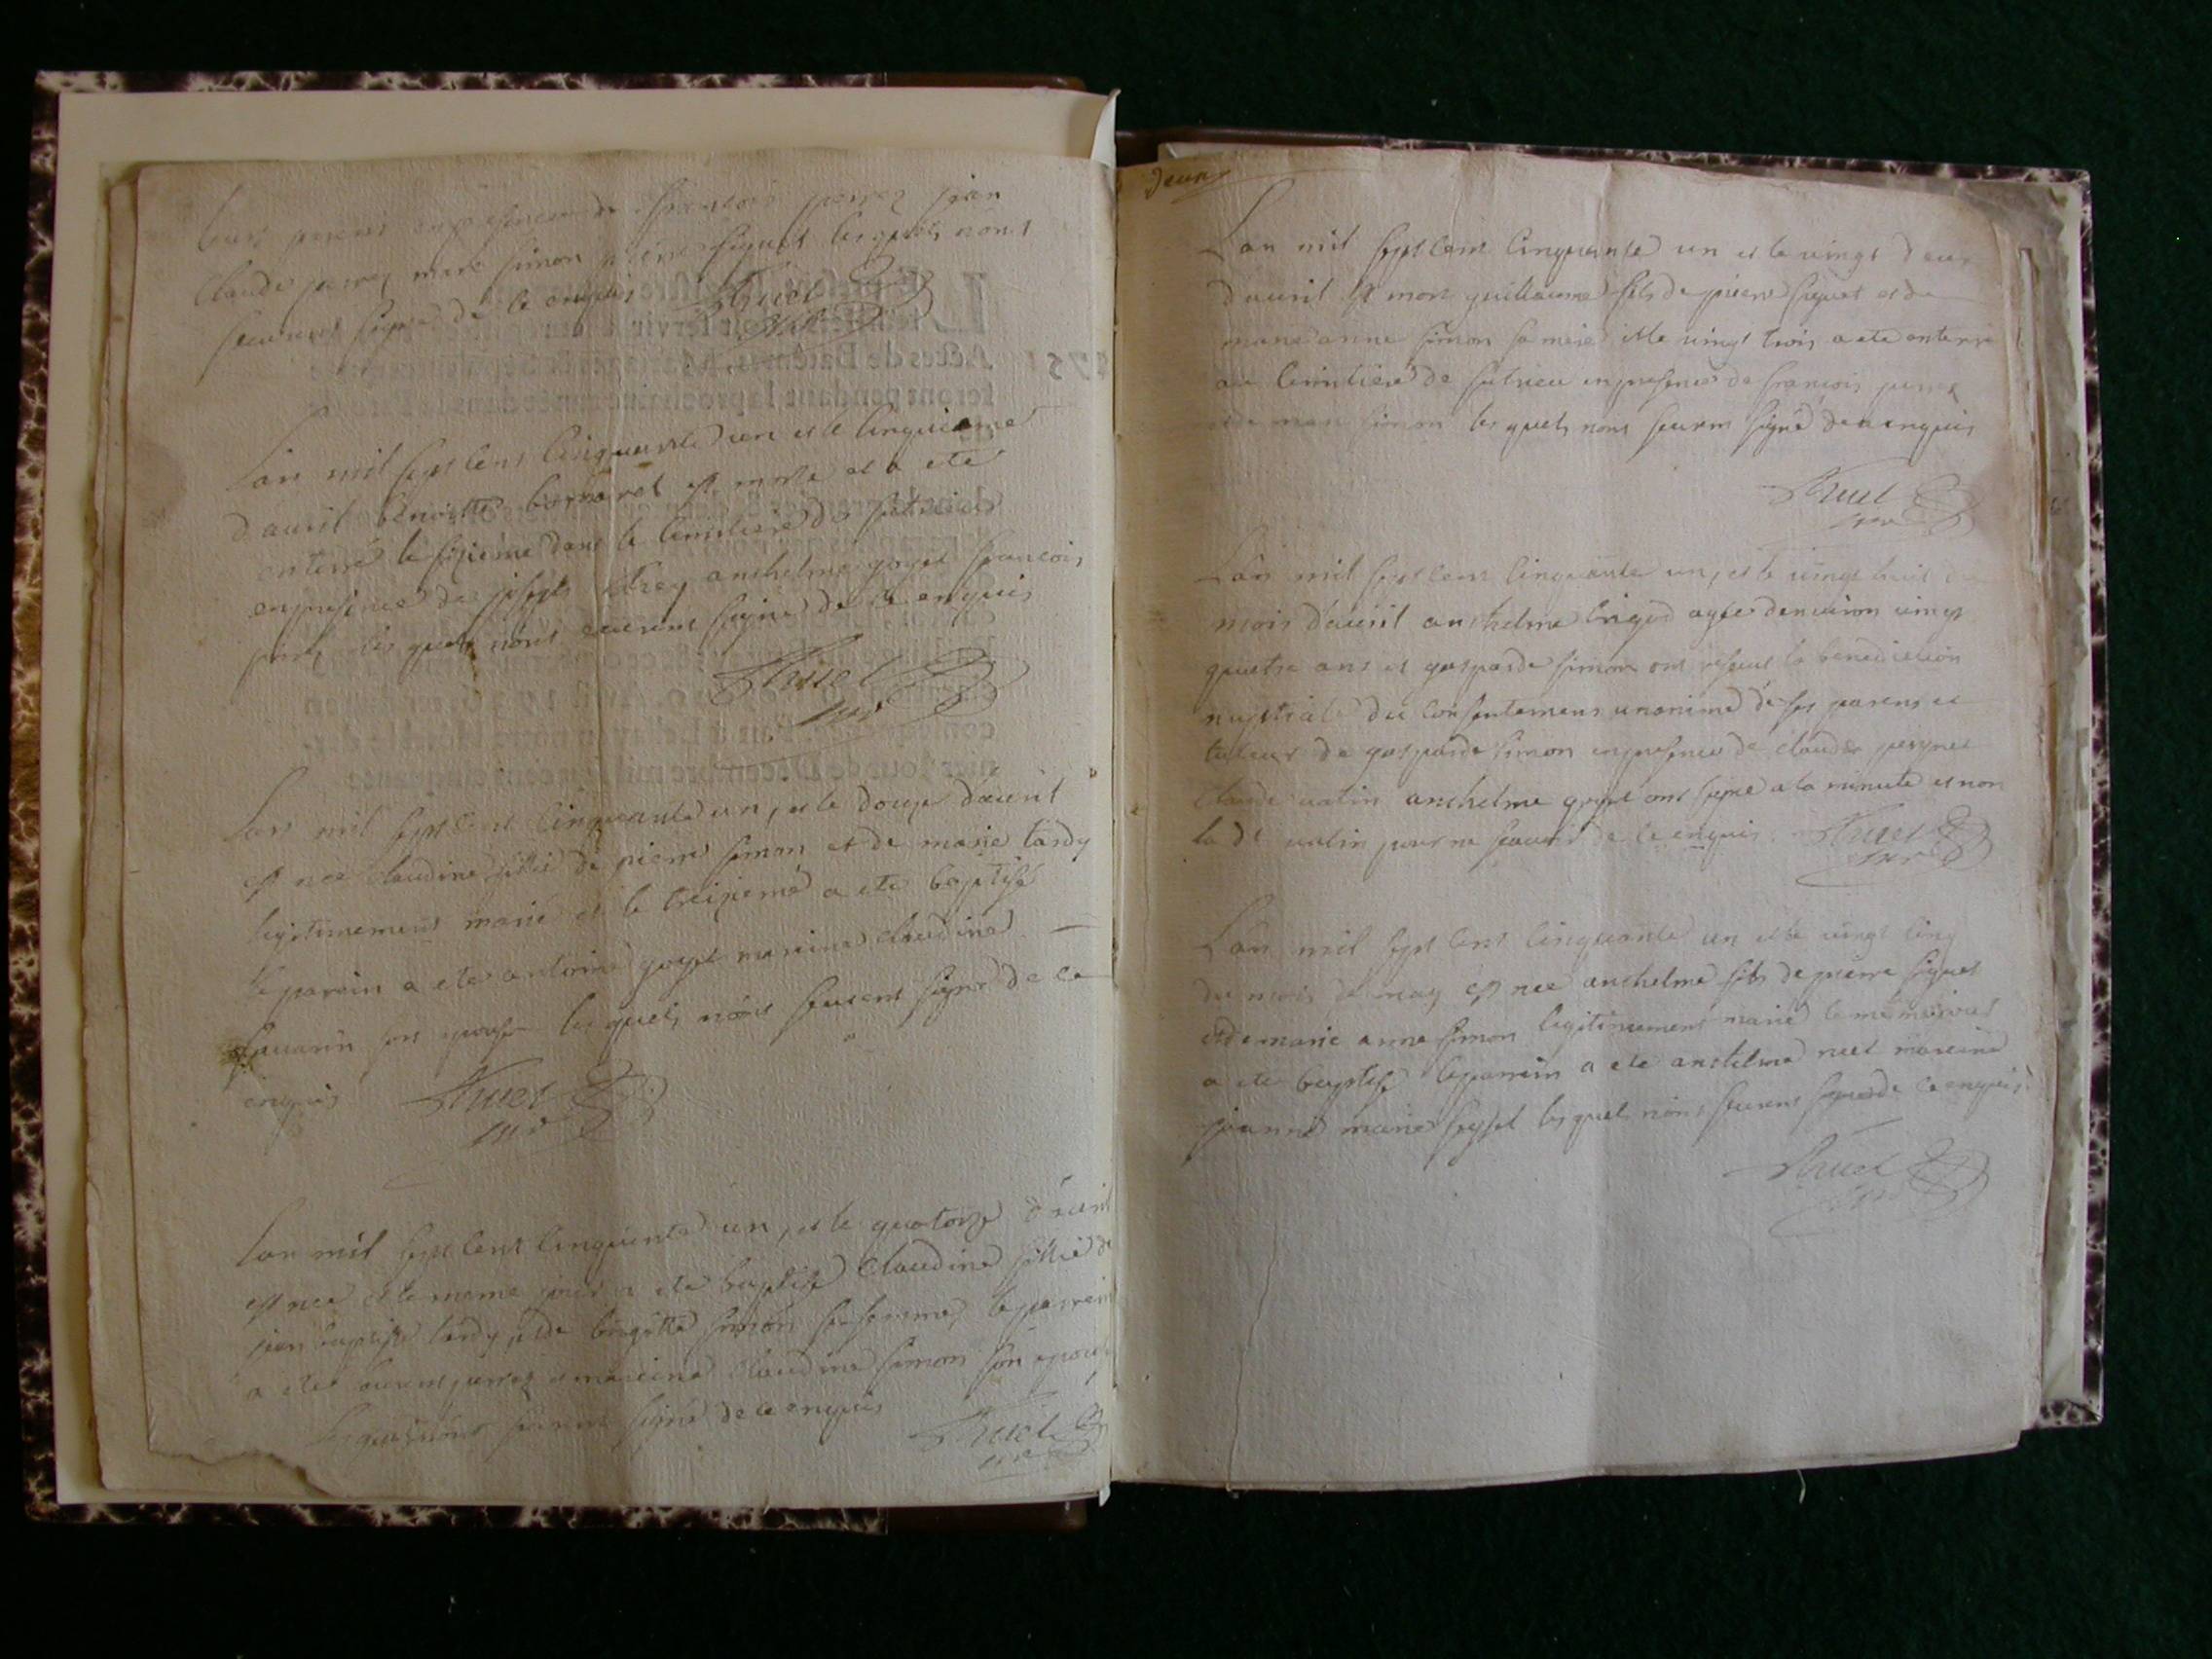 leurs parens en presence de françois perrez jean
Claude perrez marc simon pierre siguet les quels n'ont
sceu signé de ce enquis Thuel
curé
Lan mil sept cent Cinquante un et le Cinquieme
d'avril benoitte bornarel est morte et a ete
enterré le sizieme dans le Cimitiere de sutrieu
en presence de joseph anthelme goyet francois
les quels n'ont sceurent signé de ce enquis
Thuel
curé
Lan mil sept cent Cinquante un, et le douze d'avril
est nee claudine fillie de pierre simon et de marie tardy
legitimement marié et le treizieme a ete baptisé
le parain a ete antoine goyet maraine claudine
son epouse les quels n'ont sceurent signé de ce
enquis Thuel
curé
Lan mil sept cent Cinquante un, et le quatorze d'avril
est nee et le meme jour a ete baptisé Claudine fillie de
jean baptiste tardy et de brigitte simon sa femme, le parrein
a ete perrez et mareine Claudine simon son epouse
les quels n'ont sceurent signé de ce enquis
Thuel
curé
deux
Lan mil sept cent Cinquante un et le vingt deux
d'avril est mort guillaume fils de pierre siguet et de
marie anne simon sa mere et le vingt trois a ete enterré
au Cimitiere de sutrieu en presence de francois perrez
et de marc simon les quels n'ont sceurent signé de ce enquis
Thuel
curé
Lan mil sept cent Cinquante un, et le vingt huit du
mois d'avril anthelme brigod agée denviron vingt
quatre ans et gasparde simon ont reseut la benediction
nuptiale du consentement unanime de ses parens et
tuteur de gasparde simon en presence de claude
Claude vatin anthelme goyet ont signé a la minute et non
le dt vatin pour ne scavoir de ce enquis Thuel
curé
Lan mil sept cent Cinquante un et le vingt cinq
du mois de may est nee anthelme fils de pierre siguet
et de marie anne simon legitimement marié le meme jour
a ete baptisé le parrein a ete anthelme mareine
jeanne marie seyssel les quels n'ont sceurent signé de ce enquis
Thuel
curé